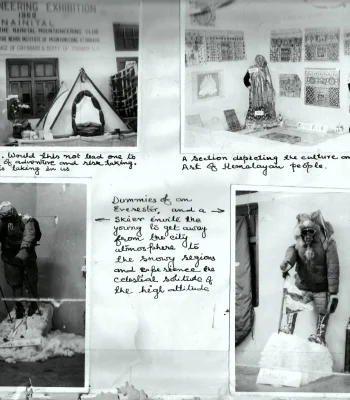 NEERING EXHIBITION
1969
NAINITAL
THE NAINITAL MOUNTAINEERING CLUB
THE NEHRU INSTITUTE OF MOUNTAINEERING UTTARKASHI
. Would this not lead one to
of adventure and risk taking.
is taking in us
A section depicting the culture an
Art of Himalayan people.
Dummies of an
Everester, and a →
← Skier invite the
young to get away
from the city
atmosphere to
the snowy regions
and experience the
celestial solitude of
the high altitude